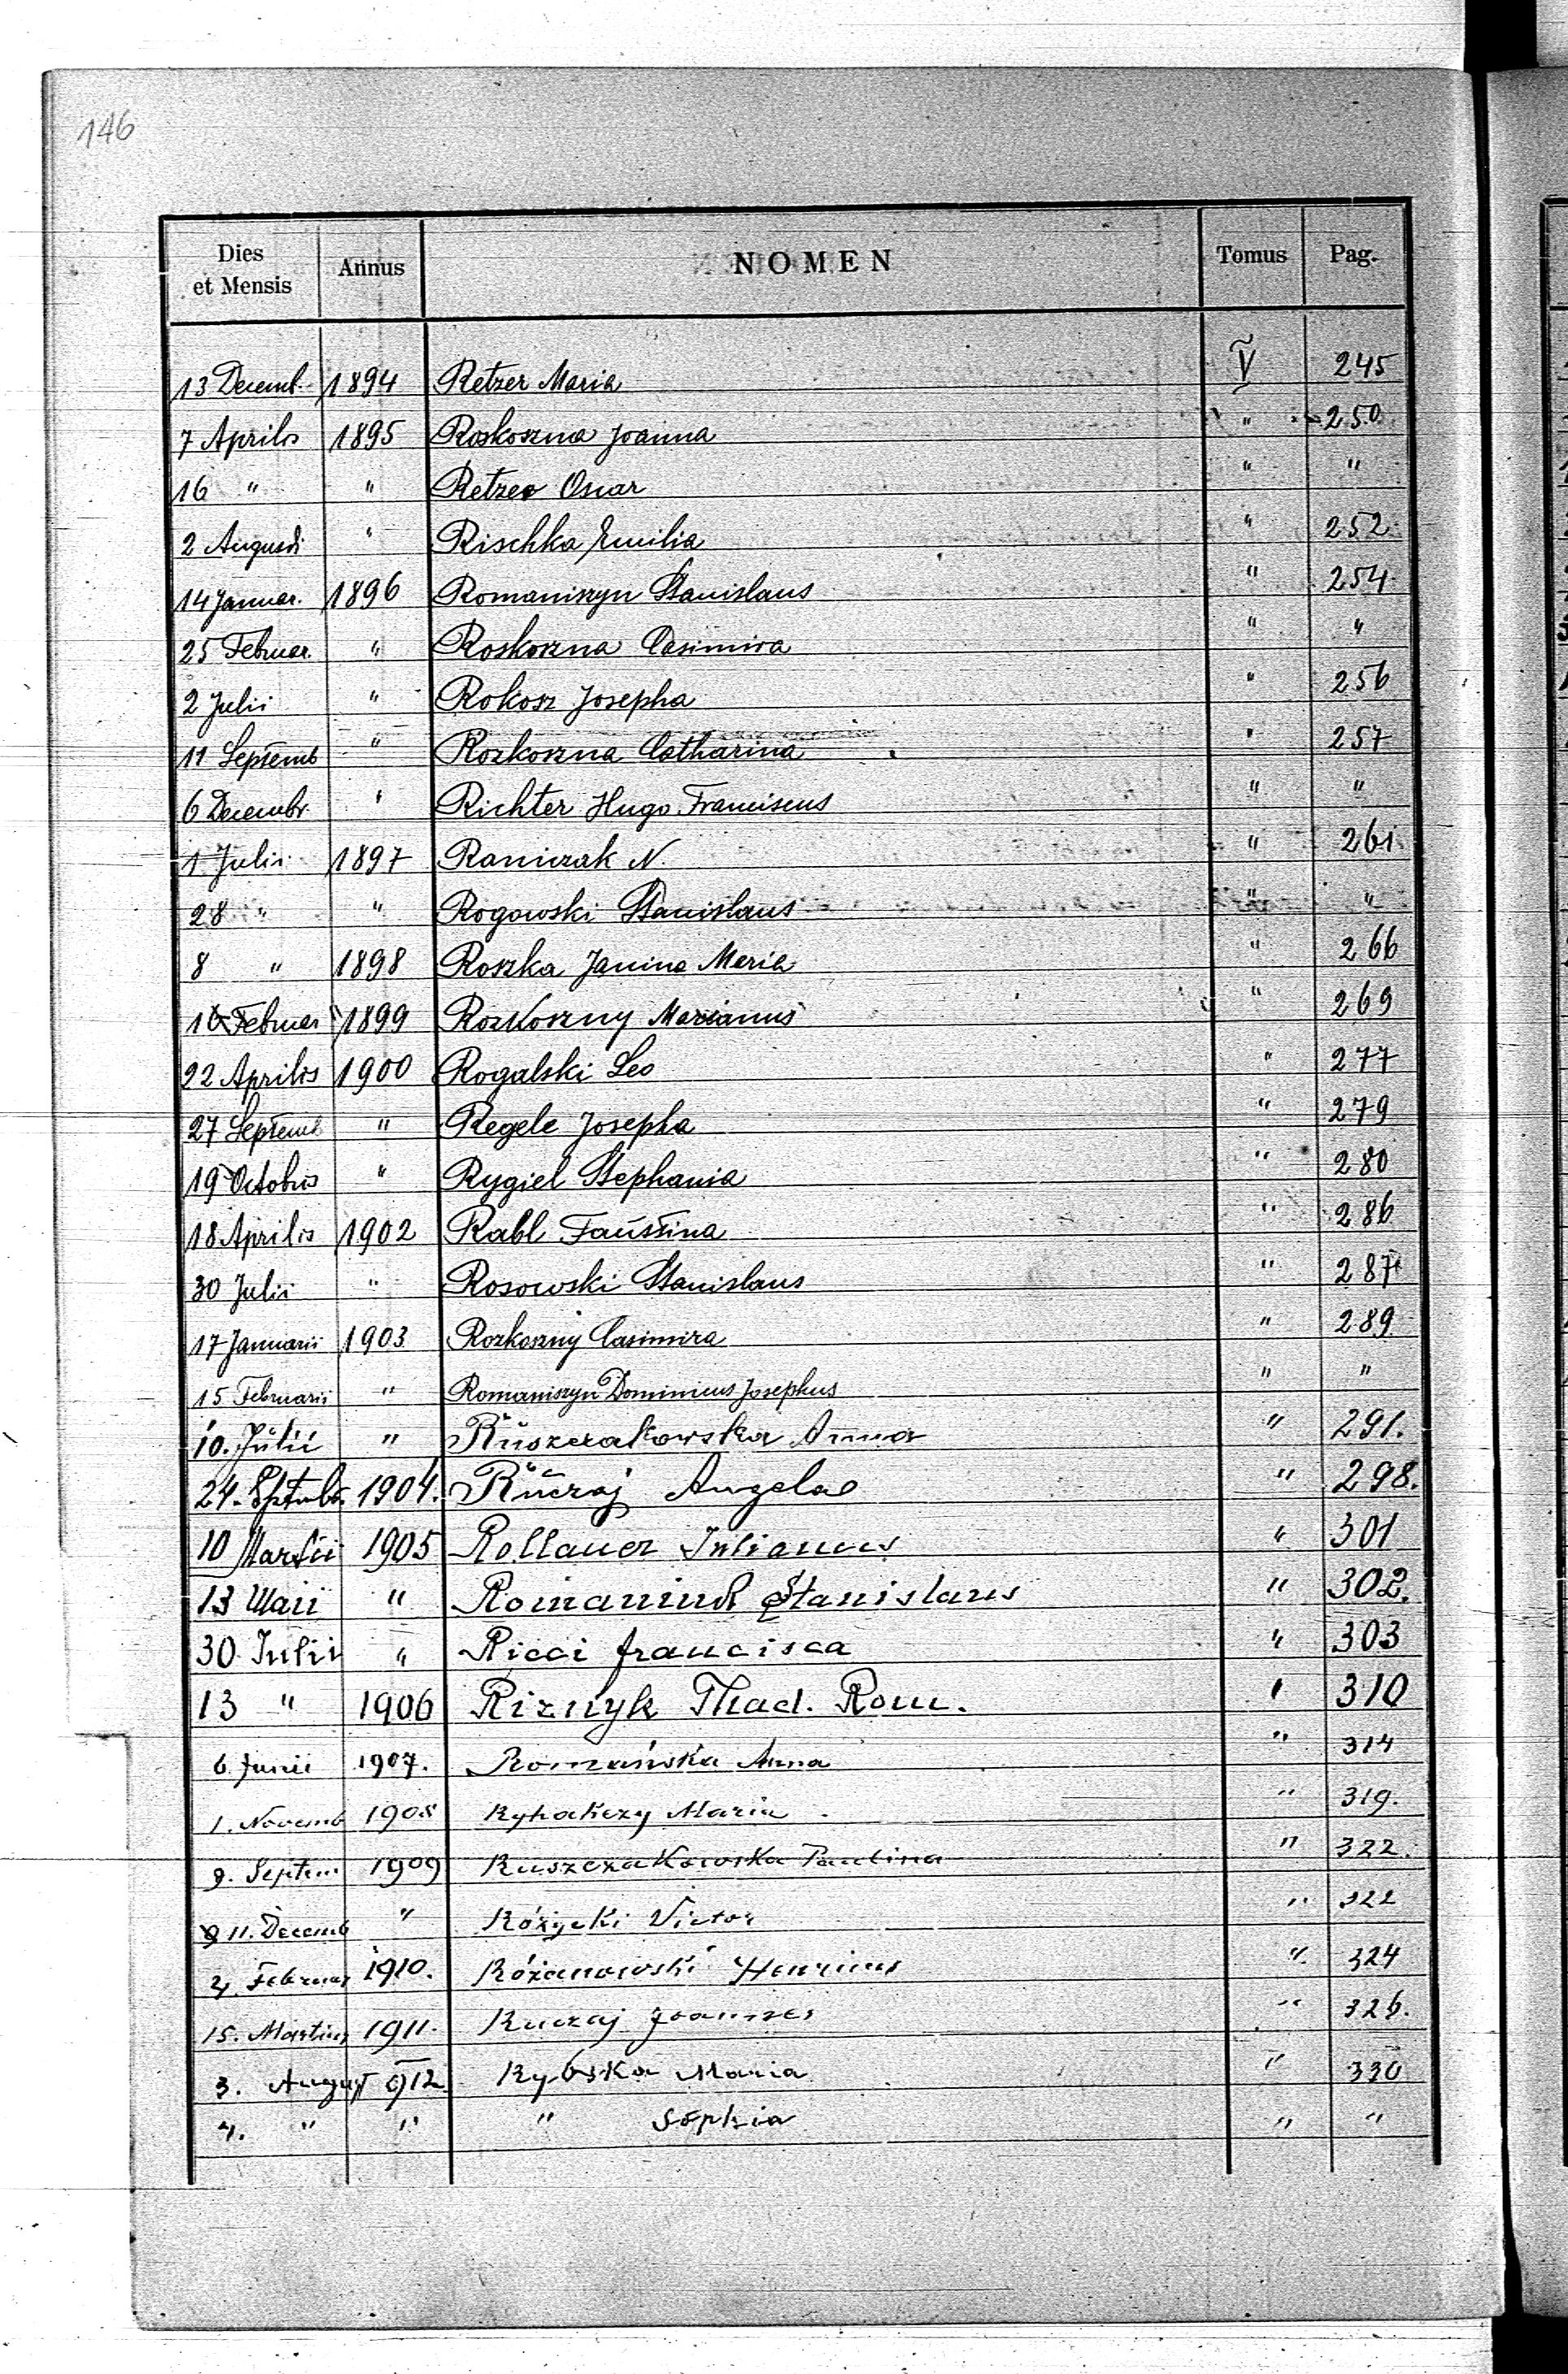 146
Dies et Mensis Annus NOMEN Tomus Pag.
13 Decemb. 1894 Retzer Maria V 245
7 Aprilis 1895 Roskoszna Joanna " 250
16 " " Retzer Oscar " "
2 Augusti " Rischka Emilia " 252
14 Januar. 1896 Romaniszyn Stanislaus " 254
25 Februar. " Roskoszna Casimira " "
2 Julii " Rokosz Josepha " 256
11 Septemb " Rozkoszna Catharina " 257
6 Decembr. " Richter Hugo Franciscus " "
1 Julii 1897 Raniczak N. " 261
28 " " Rogowski Stanislaus " "
8 " 1898 Roszka Janina Maria " 266
Februar 1899 Rozkoszny Marianus " 269
22 Aprilis 1900 Rogalski Leo " 277
27 Septemb " Regele Josepha " 279
19 Octobris " Rygiel Stephania " 280
18 Aprilis 1902 Rabl Faustina " 286
30 Julii " Rosowski Stanislaus " 287
17 Januarii 1903 Rozkoszny Casimira " 289
15 Februarii " Romaniszyn Dominicus Josephus " "
10. Jŭlii " Rŭszczakowska Anna " 291.
24. 1904. Rŭczaj Angela " 298.
10 Martii 1905 Rollauer Julianus " 301
13 Maii " Stanislaus " 302.
30 Julii " Ricci francisca " 303
13 " 1906 Riznyk Thad. Rom. " 310
6. Junii 1907. Romańska Anna " 314
1. Novemb 1908 Maria " 319.
9. Septem 1909 Ruszczakowska Paulina " 322.
11. Decemb " Różycki Victor " 322
Februar 1910. Różanowski Henricus " 324
15. Martius 1911. Ruczaj Joannes " 326.
3. August 912. Rybska Maria " 330
4. " " " Sophia " "